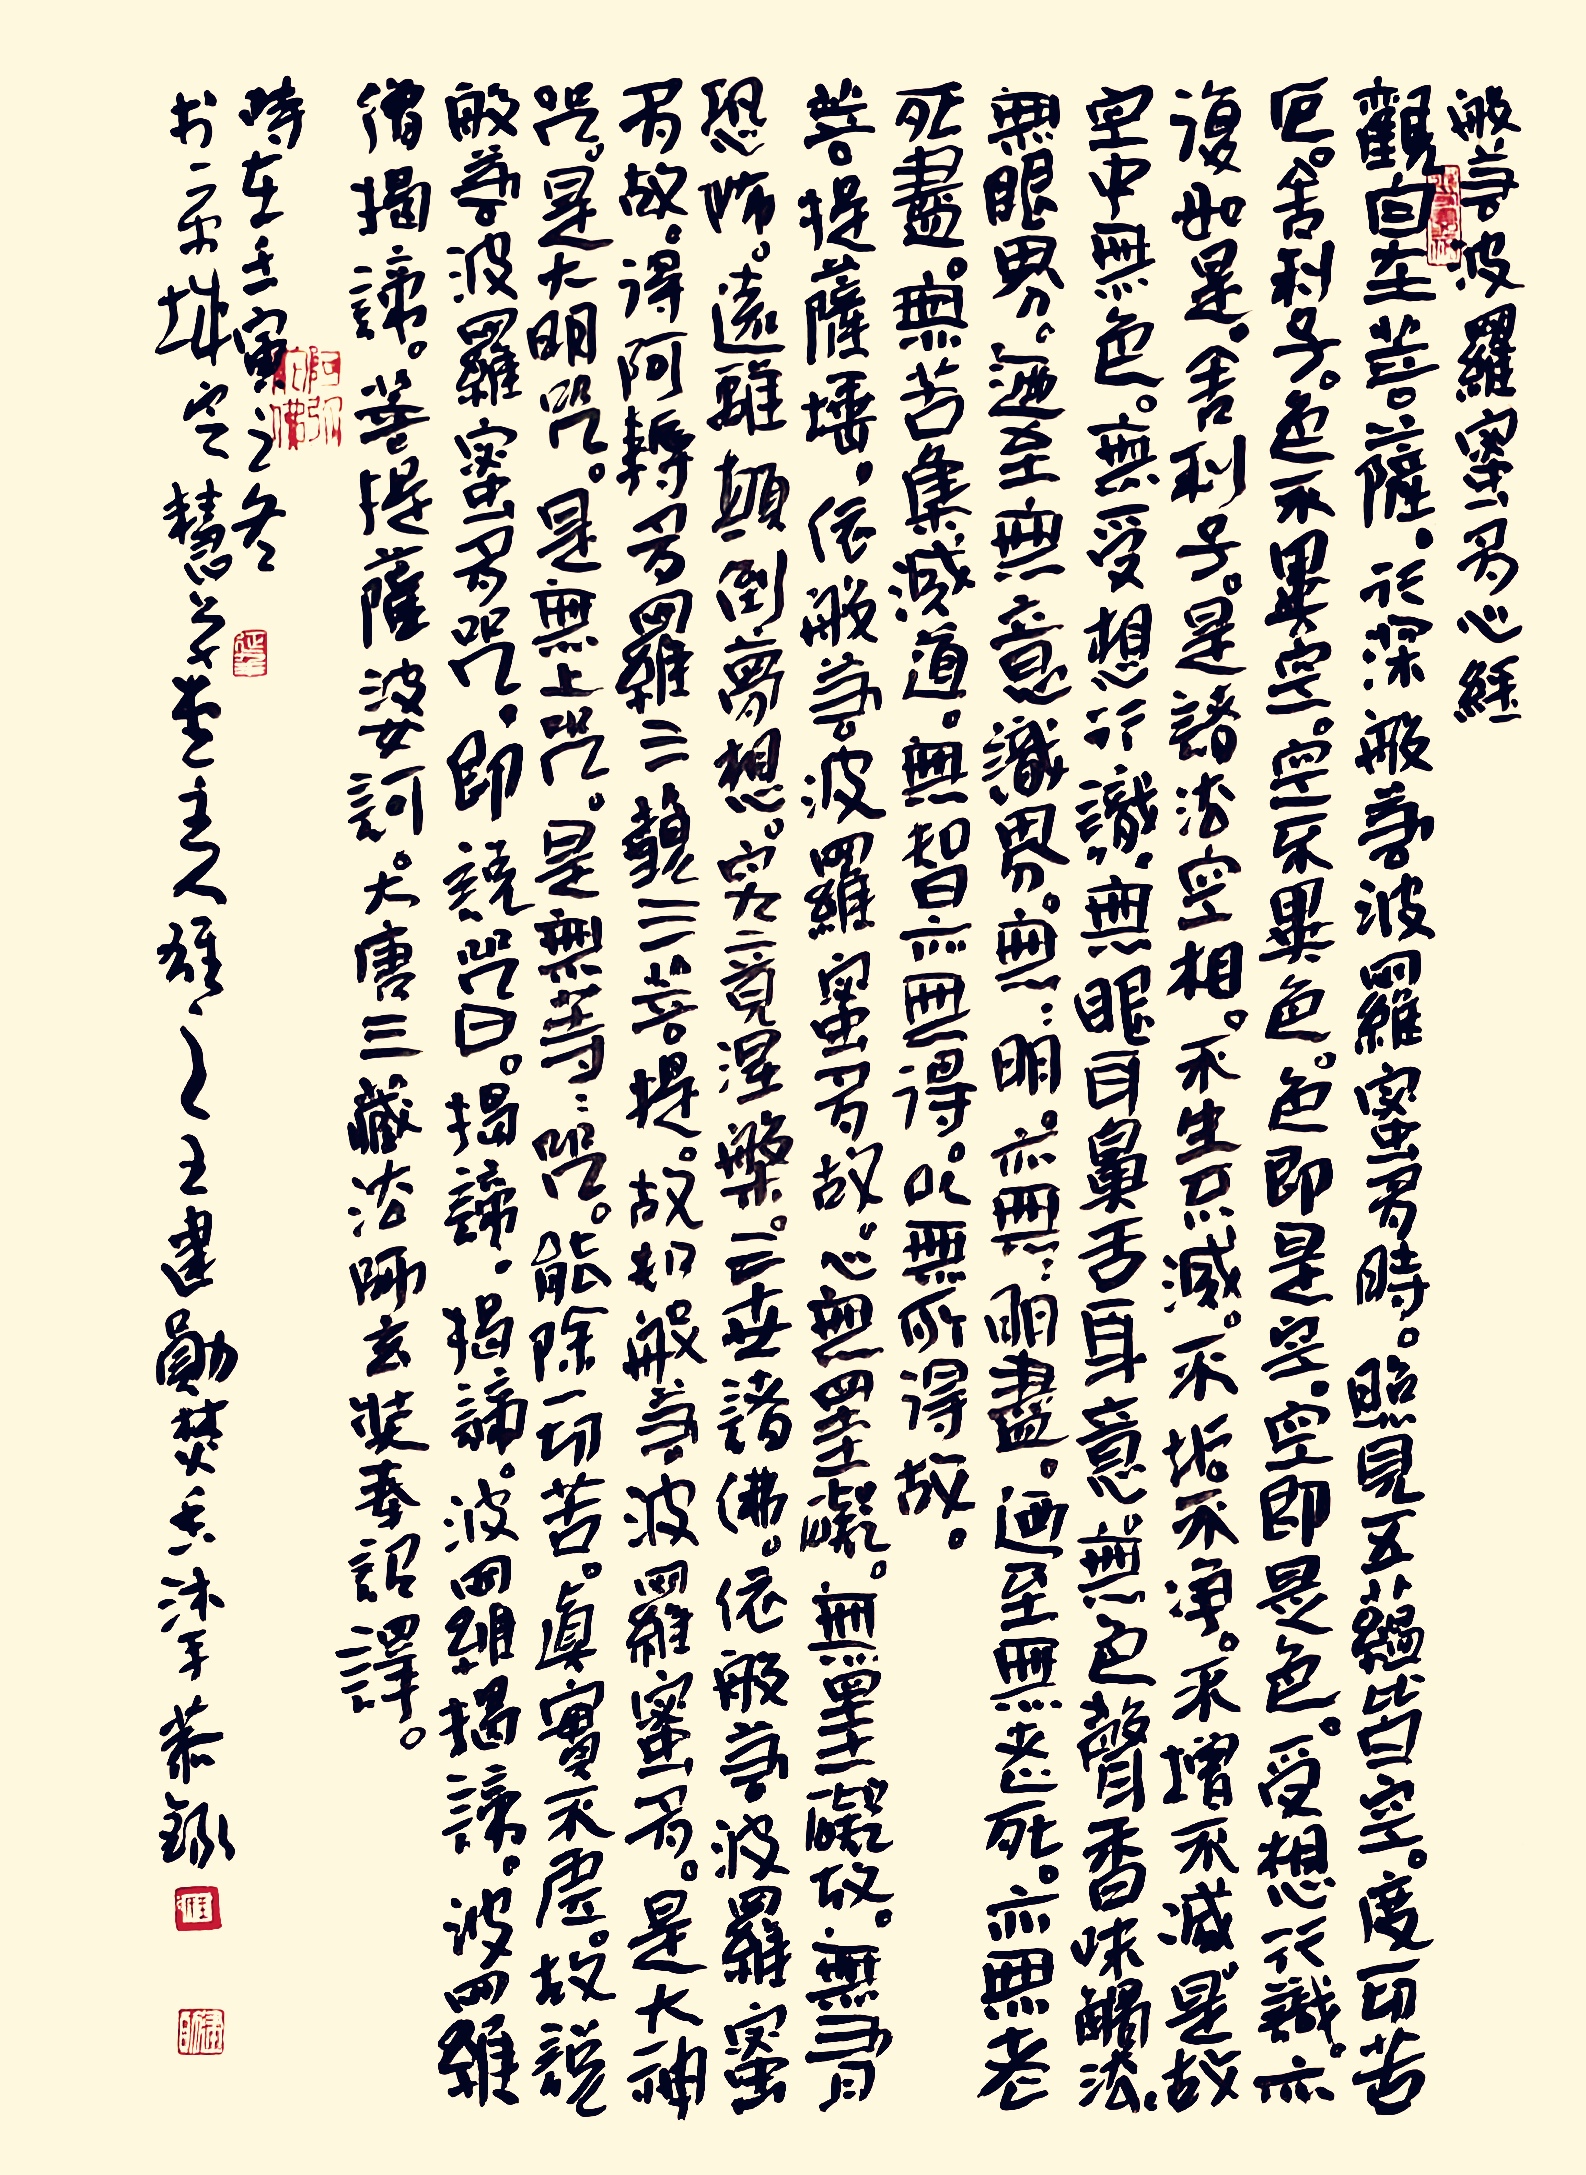 般若波羅蜜多心經
觀自在菩薩。行深般若波羅蜜多時。照見五蘊皆空。度一切苦
厄。舍利子。色不異空。空不異色。色即是空。空即是色。受想行識。亦
復如是。舍利子。是諸法空相。不生不滅。不垢不淨。不增不減。是故
空中無色。無受想行識。無眼耳鼻舌身意。無色聲香味觸法。
無眼界。迺至無意識界。無明。亦無明盡。迺至無老死。亦無老
死盡。無苦集滅道。無智亦無得。以無所得故。
菩提薩埵。依般若波羅蜜多故。心無罣礙。無罣礙故。無有
恐怖。遠離顛倒夢想。究竟涅槃。三世諸佛。依般若波羅蜜
多故。得阿耨多羅三藐三菩提。故知般若波羅蜜多。是大神
咒。是大明咒。是無上咒。是無等等咒。能除一切苦。真實不虛。故說
般若波羅蜜多咒。即說咒曰。揭諦。揭諦。波羅揭諦。波羅
僧揭諦。菩提薩婆訶。大唐三藏法師玄奘奉詔譯。
時在壬寅之冬
於京城慧草堂主人雄之王建勛焚香沐手恭錄
阿彌陀佛